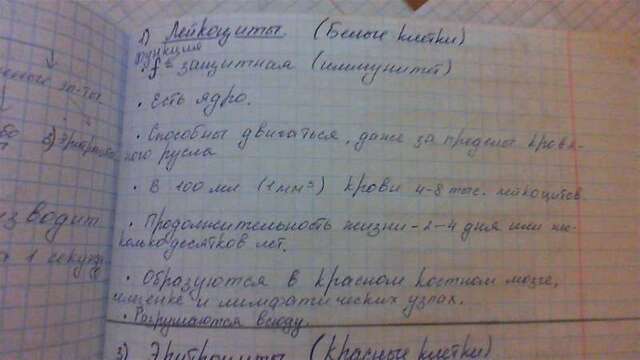 1) Лейкоциты. (Белые клетки)
функция
• f = защитная (иммунитет)
• Есть ядро.
• Способны двигаться, даже за пределы кровя-
ного русла
• В 100 мл (1 мм³) крови 4-8 тыс. лейкоцитов
• Продолжительность жизни - 2-4 дня или не-
колько десятков лет.
• Образуются в красном костном мозге,
и лимфатических узлах.
• Разрушаются всюду.
3) Эритроциты (красные клетки)
водит
1 секунду